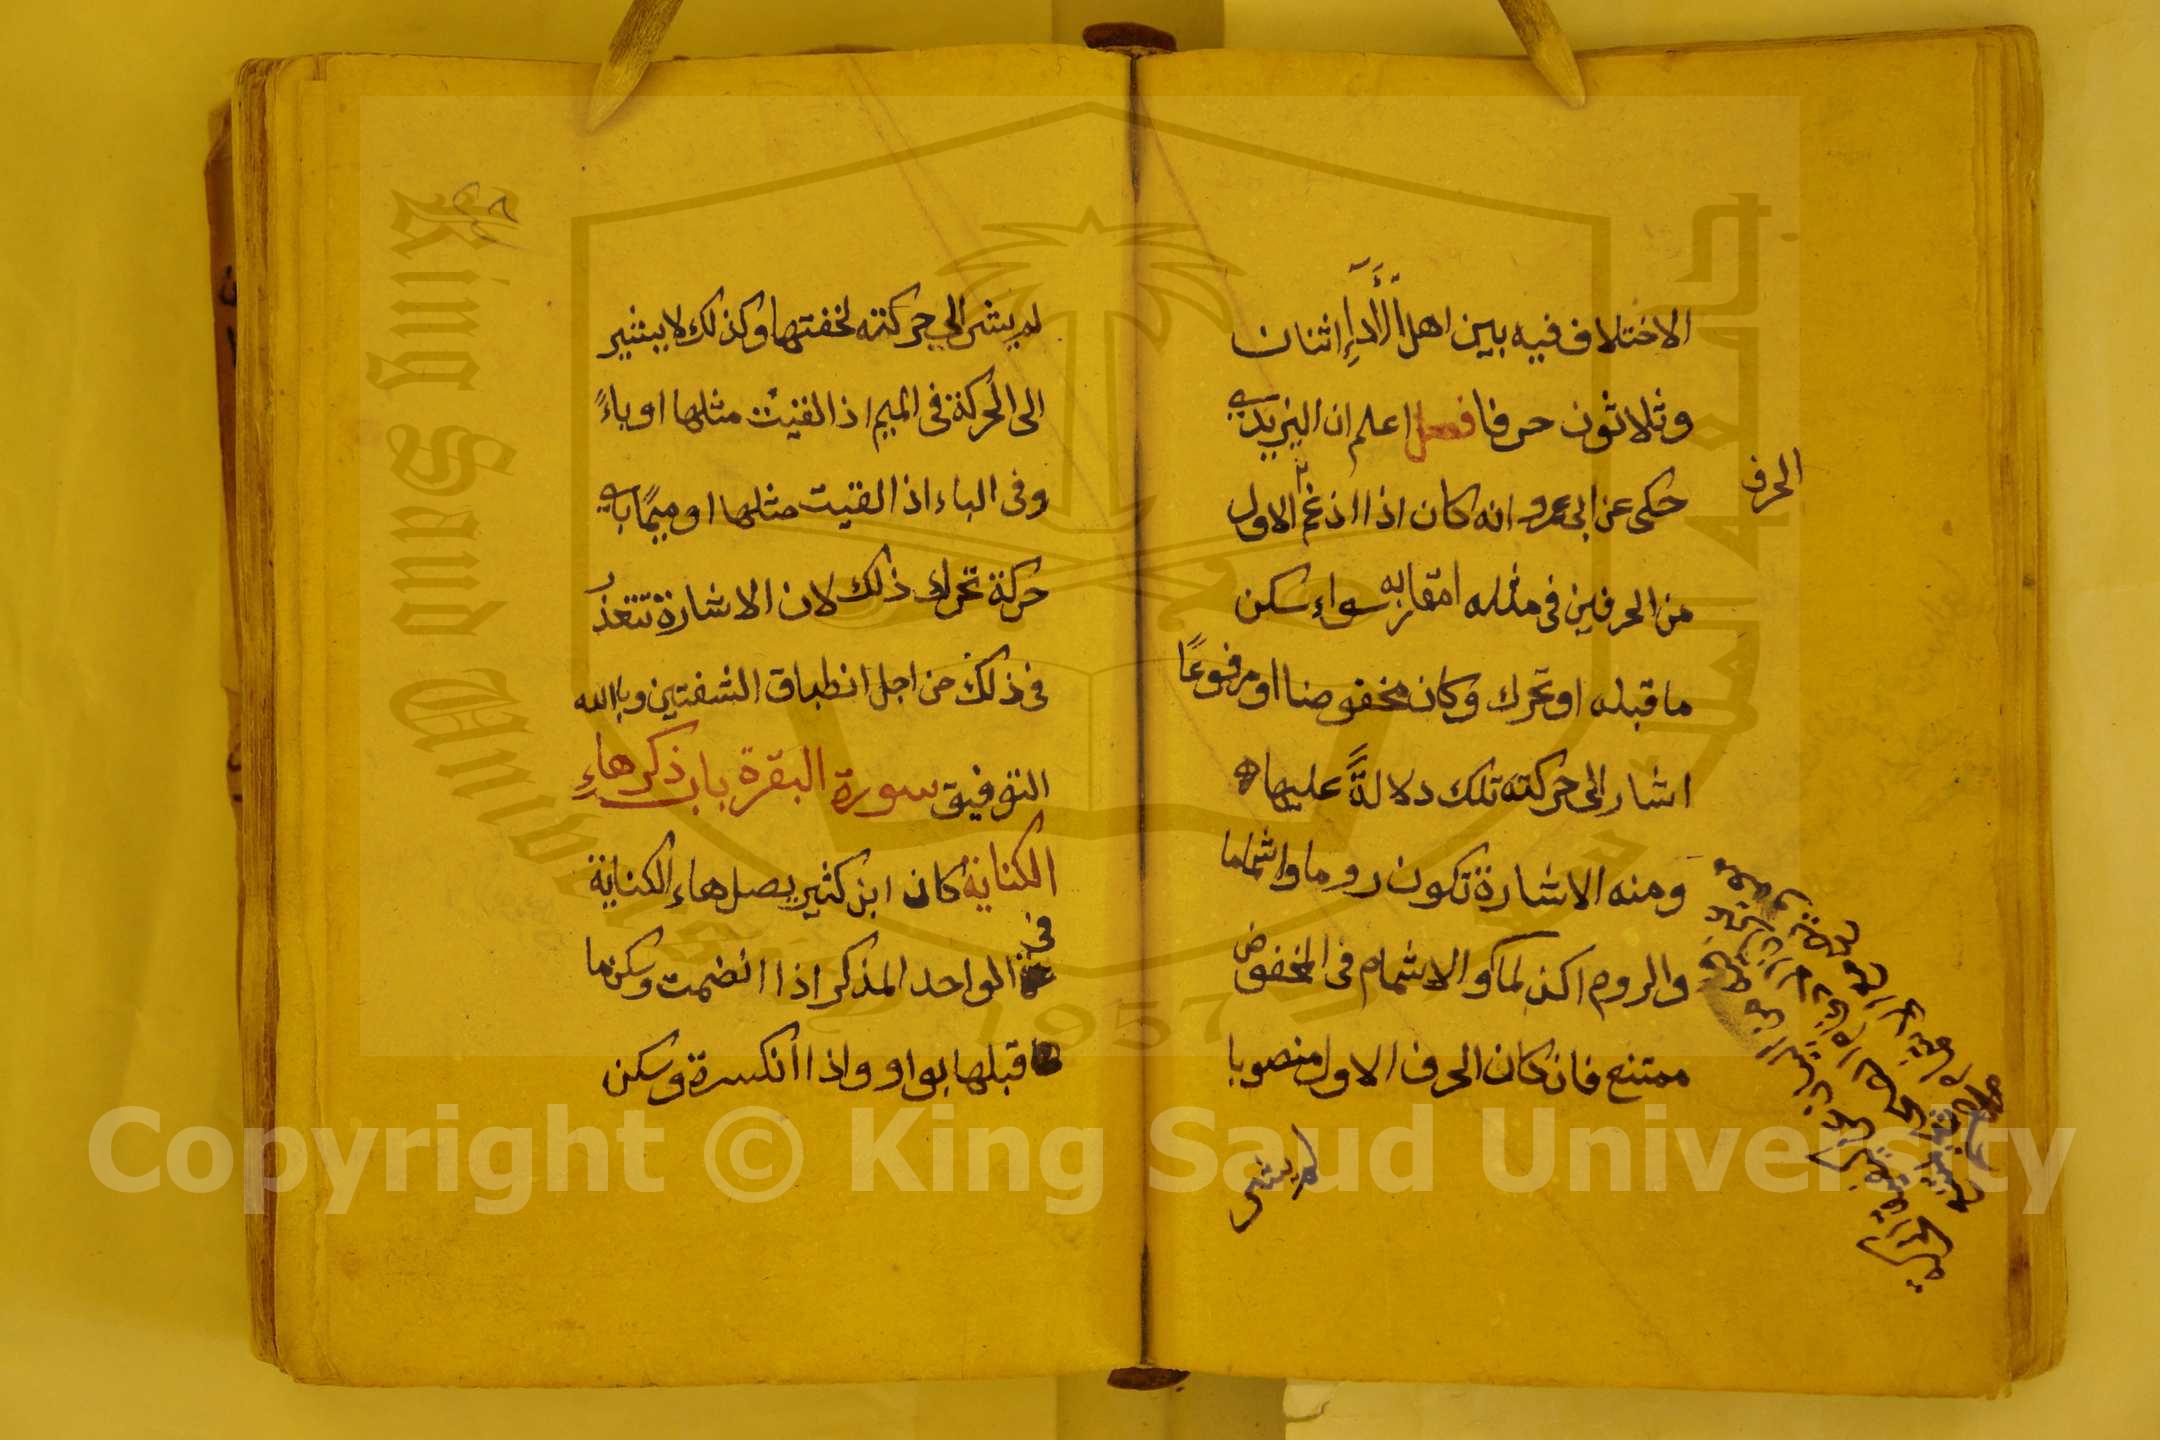 الاختلاف فيه بين اهل الأداءِ اثنان
وثلاثون حرفا فصل اعلم ان اليزيدي
حكى عن ابى عمرو انه كان اذا ادغم الاول
الحرف
من الحرفين فى مثله او مقاربه سواء سكن
ما قبله او تحرك وكان مخفوضا او مرفوعًا
اشار الى حركته تلك دلالةً عليها
ومنه الاشارة تكون روما واشماما
والروم اكد لما والاشمام فى المخفوض
ممتنع فان كان الحرف الاول منصوبا
لم يشر
لم يشر الى حركته لخفتها وكذلك لا يشير
الى الحركة فى الميم اذا لقيت مثلها او باءً
وفى الباء اذا لقيت مثلها او ميمًا باي
حركة تحرك ذلك لان الاشارة تتعذر
فى ذلك من اجل انطباق الشفتين وبالله
التوفيق سورة البقرة باب ذكر هاءِ
الكناية كان ابن كثير يصل هاء الكناية
فى
الواحد المذكر اذا انضمت وسكن ما
قبلها بواو واذا انكسرة وسكن
King Saud University
جامعة الملك سعود
1957
Copyright © King Saud University